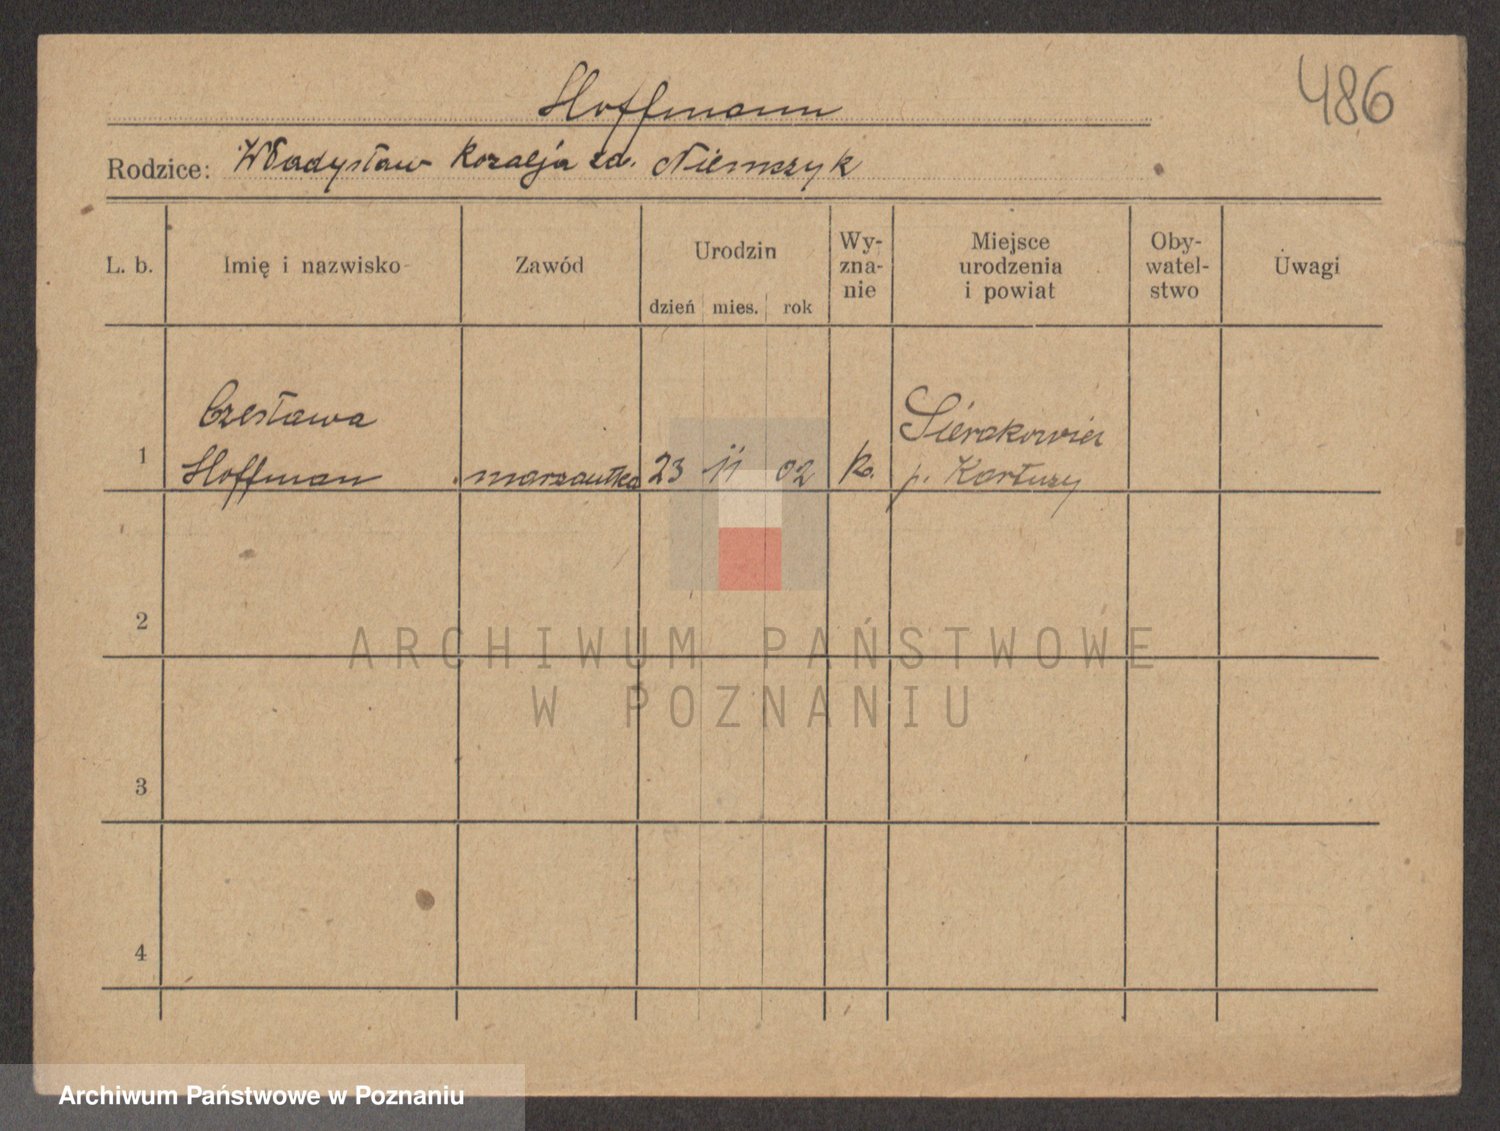 486
Hoffmann
Rodzice: Władysław Rozalja zd. Niemczyk
L. b.
Imię i nazwisko
Zawód
Urodzin
dzień mies. rok
Wy-
zna-
nie
Miejsce
urodzenia
i powiat
Oby-
watel-
stwo
Uwagi
1
Czesława
Hoffman
marzantka
23 11 02
k.
Sierakowice
p. Kartuzy
2
3
4
ARCHIWUM PAŃSTWOWE
W POZNANIU
Archiwum Państwowe w Poznaniu